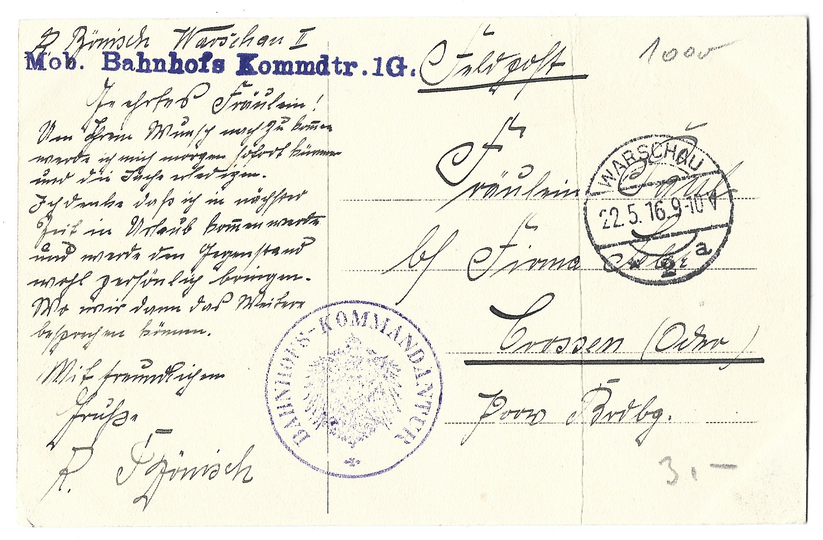 R Bönisch Warschau II
Mob. Bahnhofs Kommdtr. 1G.
Geehrtes Fräulein!
Um Ihrem Wunsch nachzukommen
werde ich mich morgen sofort kümmern
und die Sache erledigen.
Ich denke daß ich in nächster
Zeit in Urlaub kommen werde
und werde den Gegenstand
wohl persönlich bringen.
Wo wir dann das Weitere
besprechen können.
Mit freundlichen
Grüße
R. Bönisch
BAHNHOFS-KOMMANDANTUR
Feldpost
1000
Fräulein
WARSCHAU
22.5.16.9-10V
* 2 a
b/ Firma
Crossen (Oder)
Prov Brdbg.
3.-